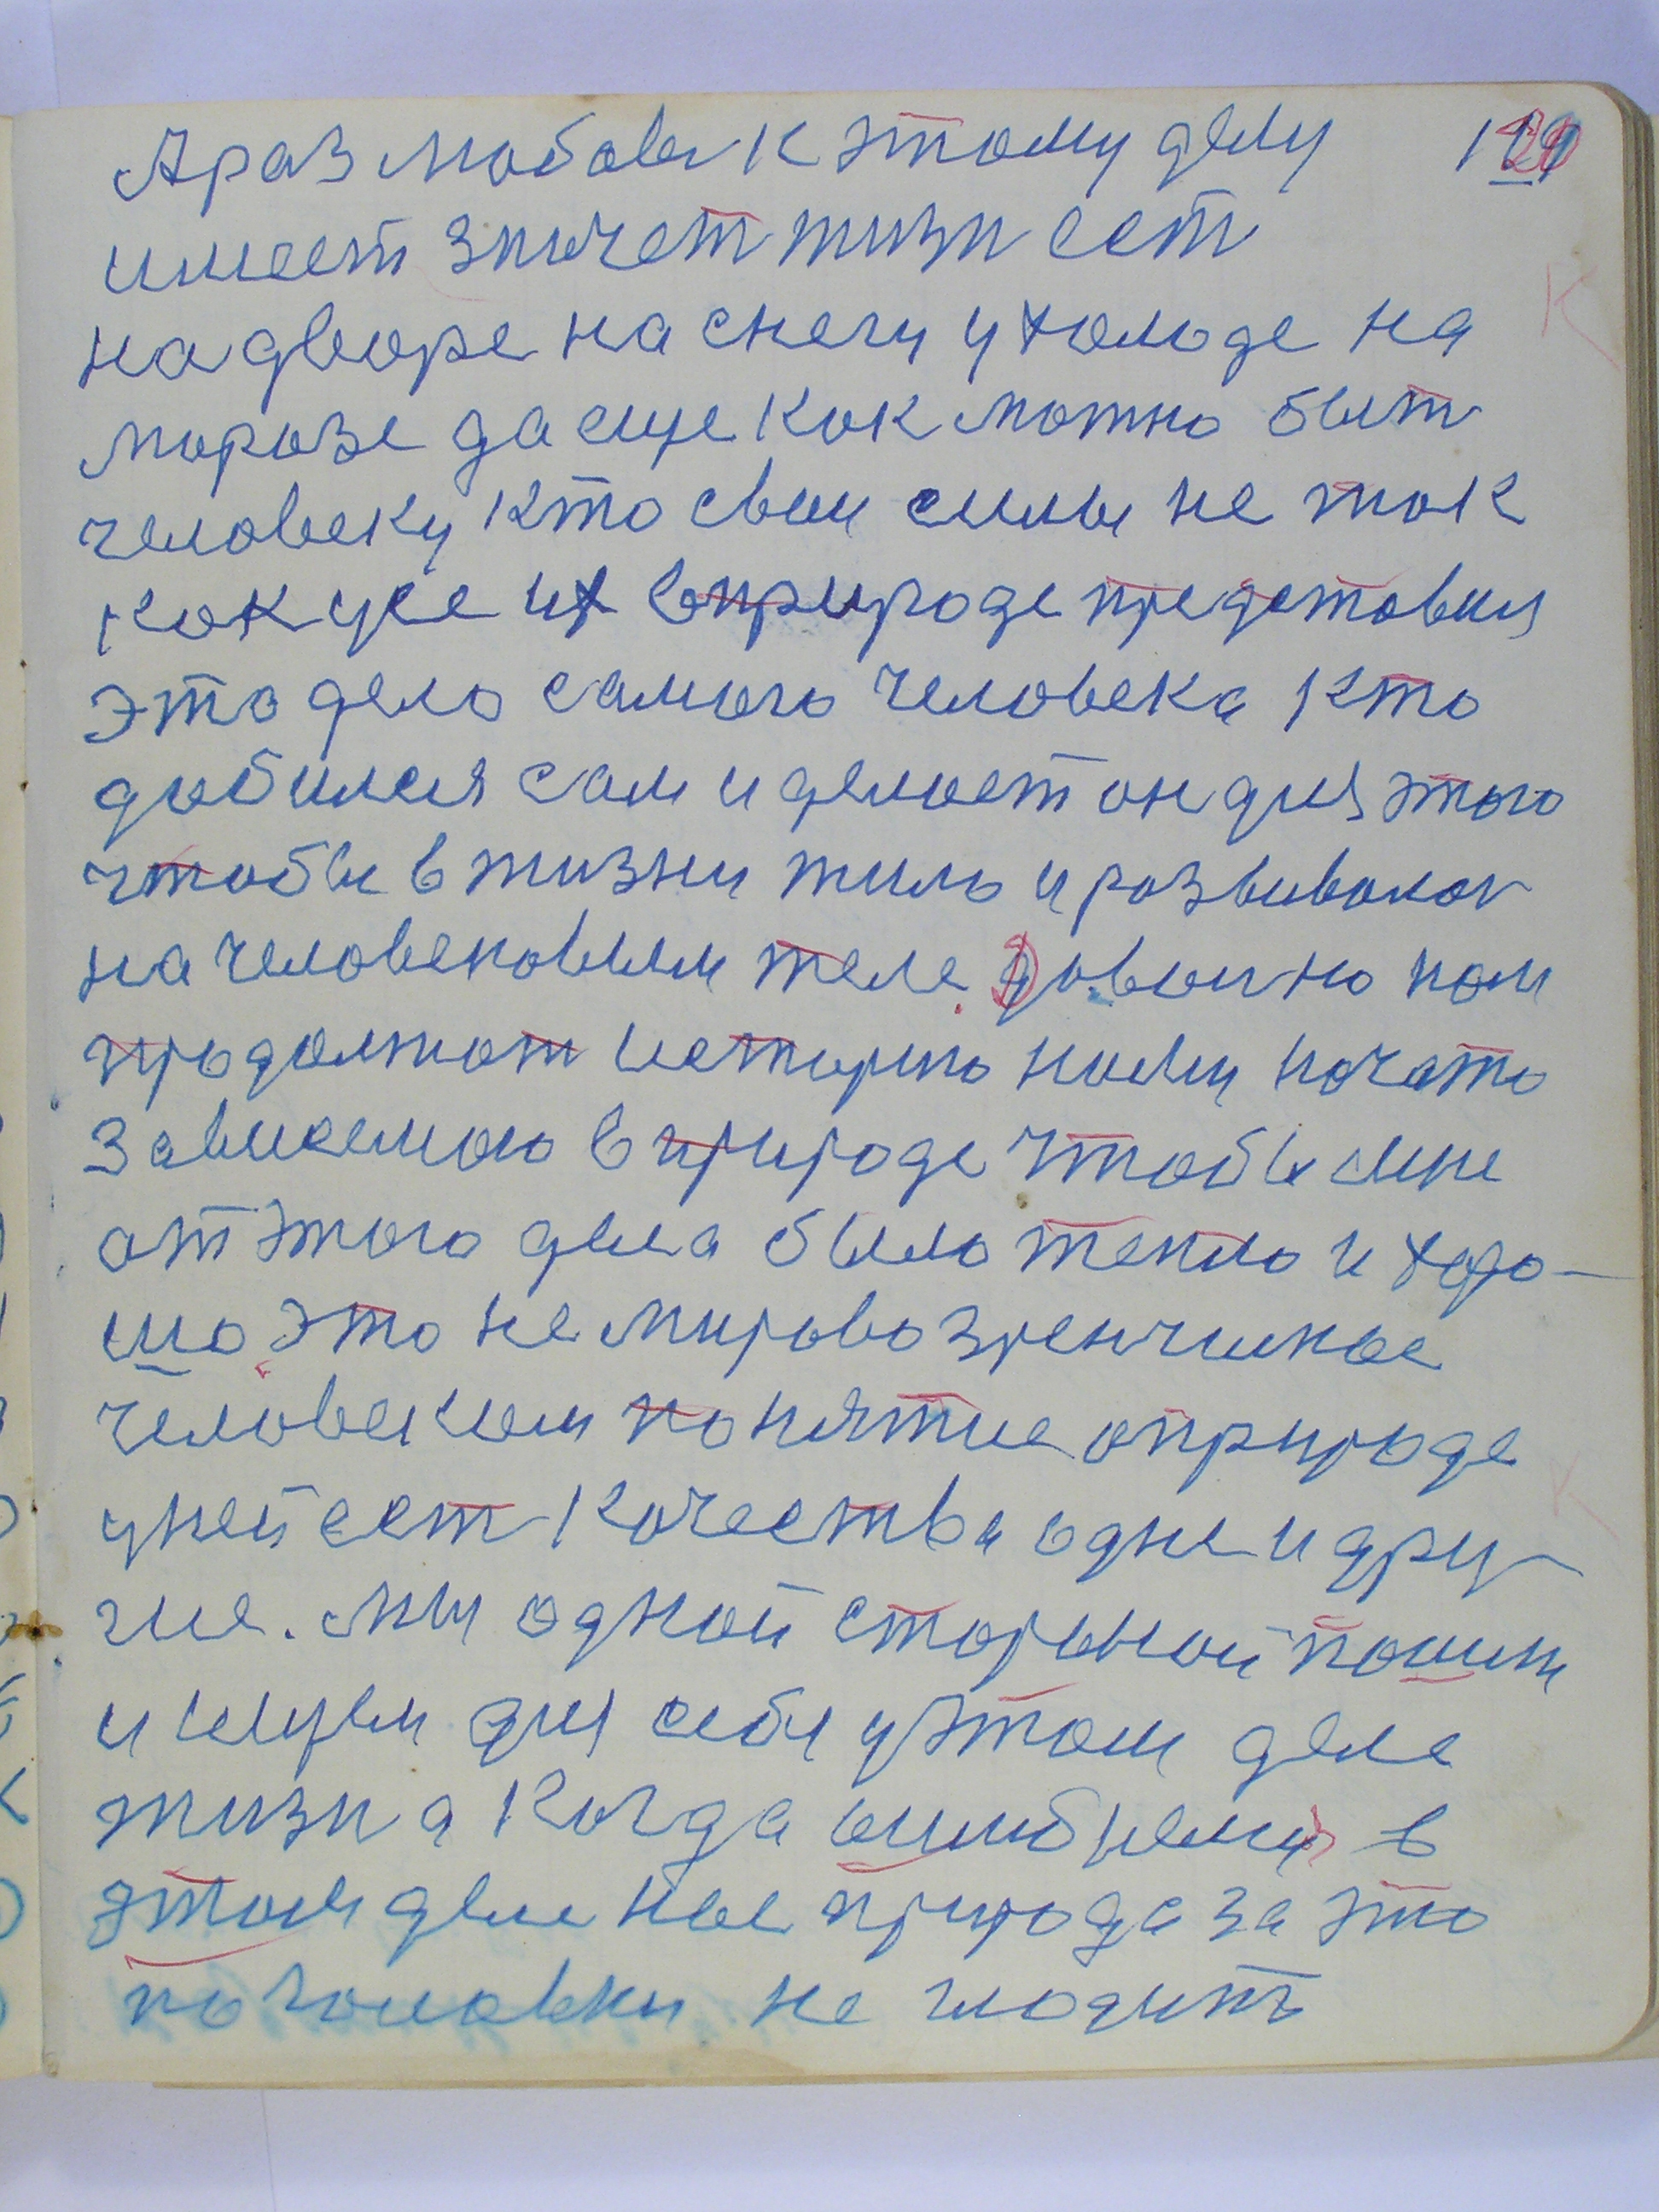 А раз любовь к этому делу
имеет значет жизн ест
на дворе на снегу у холоде на
морозе да еще как можно быт
человеку кто свои силы не так
как усе их в природе представил
это дело самого человека кто
добился сам и делает он для этого
чтобы в жизни жило и развивалос
на человековым теле довольно нам
продолжат историю нашу начату
зависемою в природе чтобы мне
от этого дела было тепло и хоро-
шо это не мировозренческое
человеком понятие о природе
у ней ест качества одне и дру-
гие. Мы одной стороной пошли
и ищем для себя у этом деле
жизн а когда ошибнемся в
этом деле нас природа за это
по головки не гладить